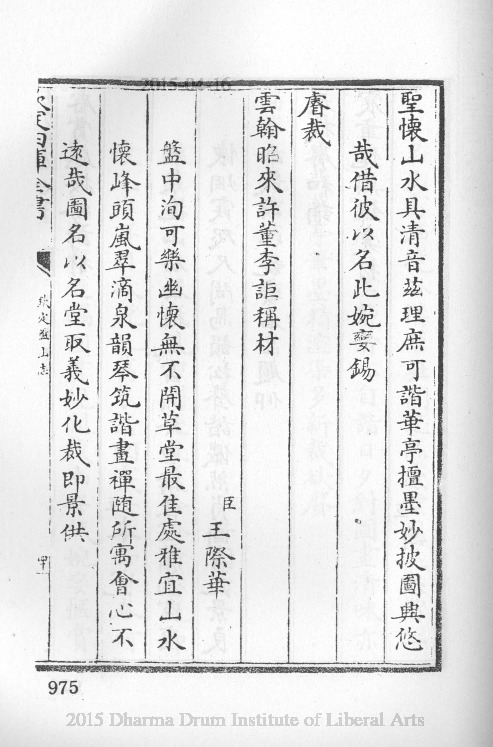 2015-04-16
聖懷山水具清音茲理庶可諧華亭擅墨妙披圖興悠
哉借彼以名此婉孌錫
睿裁
雲翰昭來許董李詎稱材
臣王際華
盤中洵可樂幽懷無不開草堂最佳處雅宜山水
懷峰頭嵐翠滴泉韻琴筑諧畫禪隨所寓會心不
遠哉圖名以名堂取義妙化裁即景供
欽定四庫全書
欽定盤山志
975
2015 Dharma Drum Institute of Liberal Arts